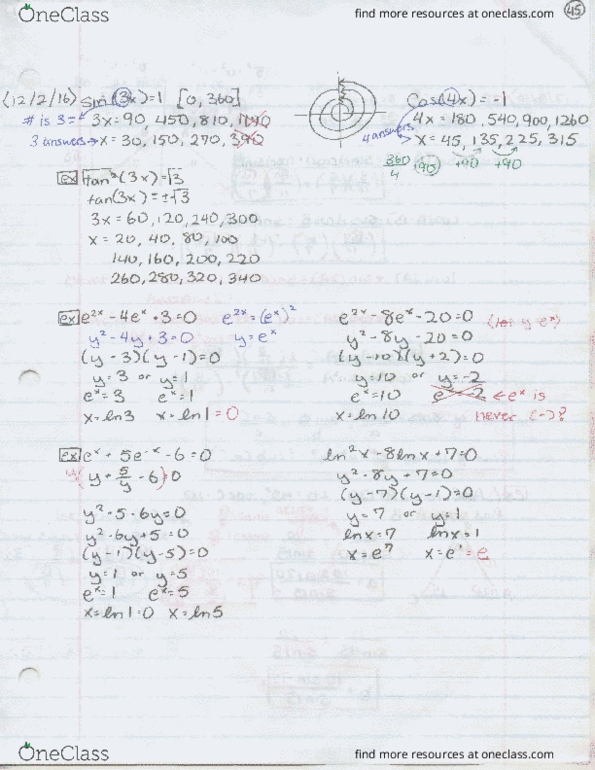 OneClass
find more resources at oneclass.com
45
(12/2/16) sin(3x)=1 [0, 360]
# is 3 = 3x = 90, 450, 810, 1170
3 answers → x = 30, 150, 270, 390
cos(4x) = -1
4x = 180, 540, 900, 1260
4 answers x = 45, 135, 225, 315
360/4 +90 +90 +90
ex tan²(3x) = √3
tan(3x) = ±√3
3x = 60, 120, 240, 300
x = 20, 40, 80, 100
140, 160, 200, 220
260, 280, 320, 340
ex e^2x - 4e^x + 3 = 0 e^2x = (e^x)^2
y² - 4y + 3 = 0 y = e^x
(y - 3)(y - 1) = 0
y = 3 or y = 1
e^x = 3 e^x = 1
x = ln3 x = ln1 = 0
e^2x - 8e^x - 20 = 0 (let y e^x)
y² - 8y - 20 = 0
(y - 10)(y + 2) = 0
y = 10 or y = -2
e^x = 10 e^x = -2 ← e^x is
x = ln10 never (-)?
ex e^x + 5e^-x - 6 = 0
y(y + 5/y - 6) = 0
y² + 5 - 6y = 0
y² - 6y + 5 = 0
(y - 1)(y - 5) = 0
y = 1 or y = 5
e^x = 1 e^x = 5
x = ln1 = 0 x = ln5
ln²x - 8lnx + 7 = 0
y² - 8y + 7 = 0
(y - 7)(y - 1) = 0
y = 7 or y = 1
lnx = 7 lnx = 1
x = e^7 x = e^1 = e
OneClass
find more resources at oneclass.com